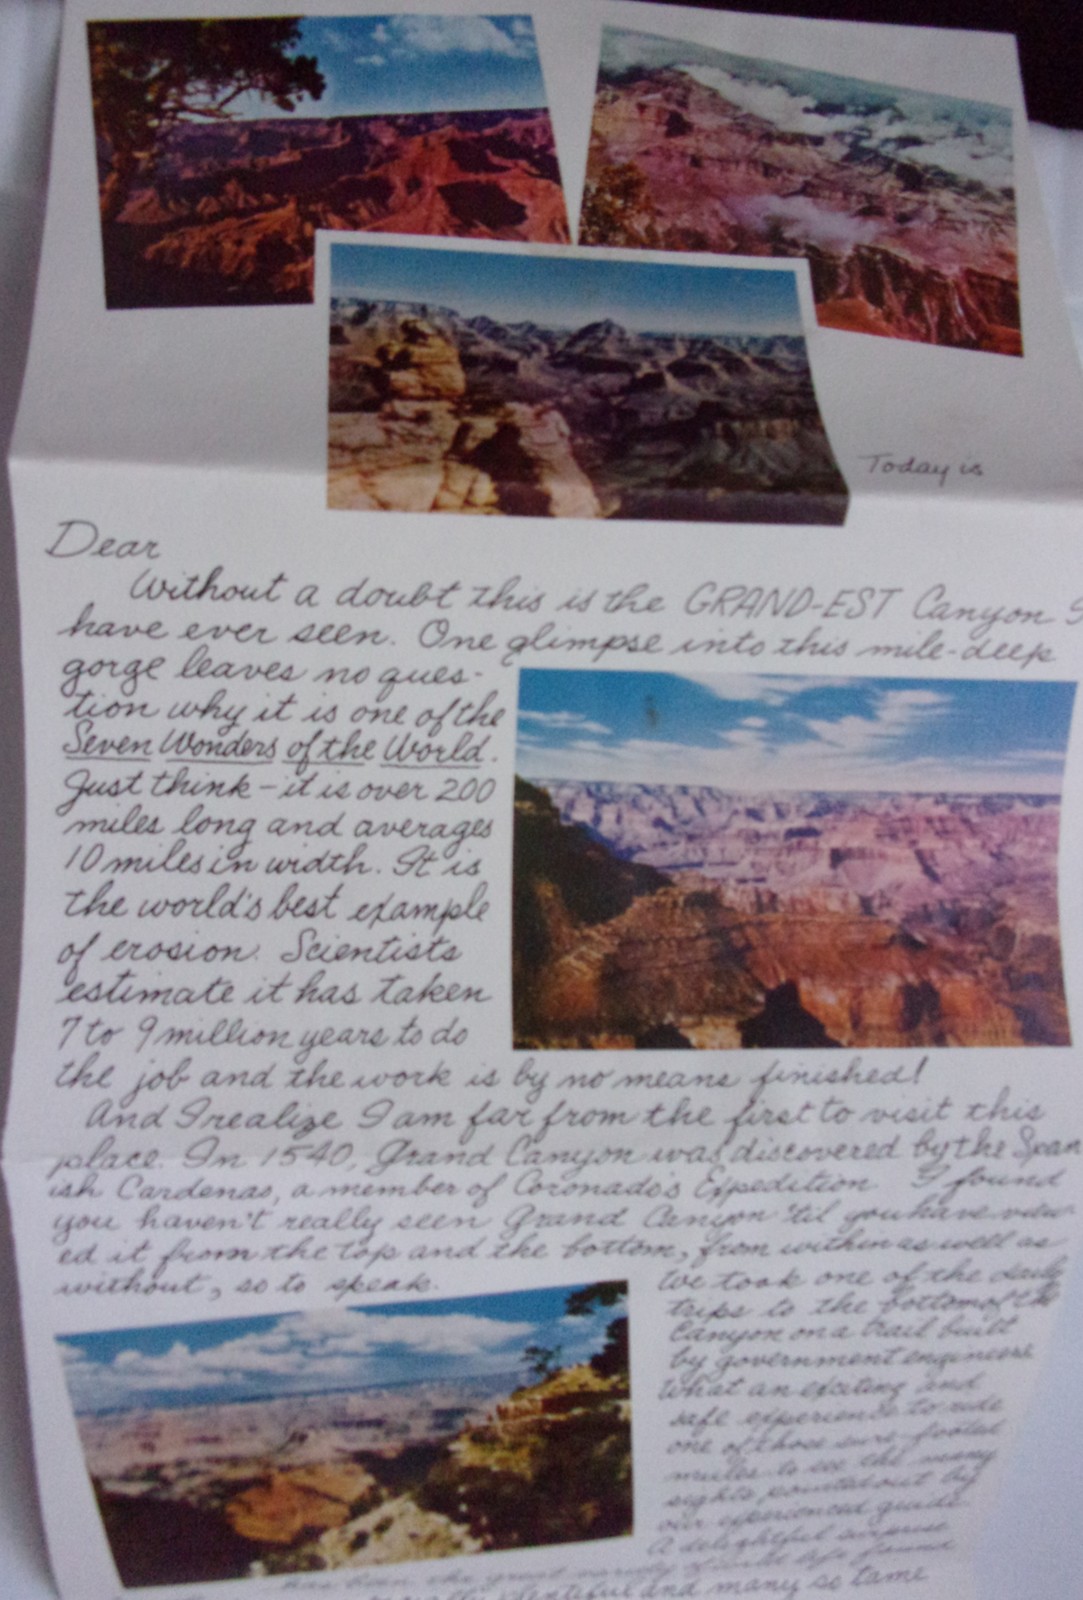 Today is
Dear
Without a doubt this is the GRAND-EST Canyon I
have ever seen. One glimpse into this mile-deep
gorge leaves no ques-
tion why it is one of the
Seven Wonders of the World.
Just think - it is over 200
miles long and averages
10 miles in width. It is
the world's best example
of erosion. Scientists
estimate it has taken
7 to 9 million years to do
the job and the work is by no means finished!
And I realize I am far from the first to visit this
place. In 1540, Grand Canyon was discovered by the Span
ish Cardenas, a member of Coronado's Expedition. I found
you haven't really seen Grand Canyon 'til you have view
ed it from the top and the bottom, from within as well as
without, so to speak.
We took one of the daily
trips to the bottom of the
Canyon on a trail built
by government engineers
What an exciting and
safe experience to ride
one of those sure-footed
mules to see the many
sights pointed out by
our experienced guide.
A delightful surprise
has been the great variety of wild life found
plentiful and many so tame